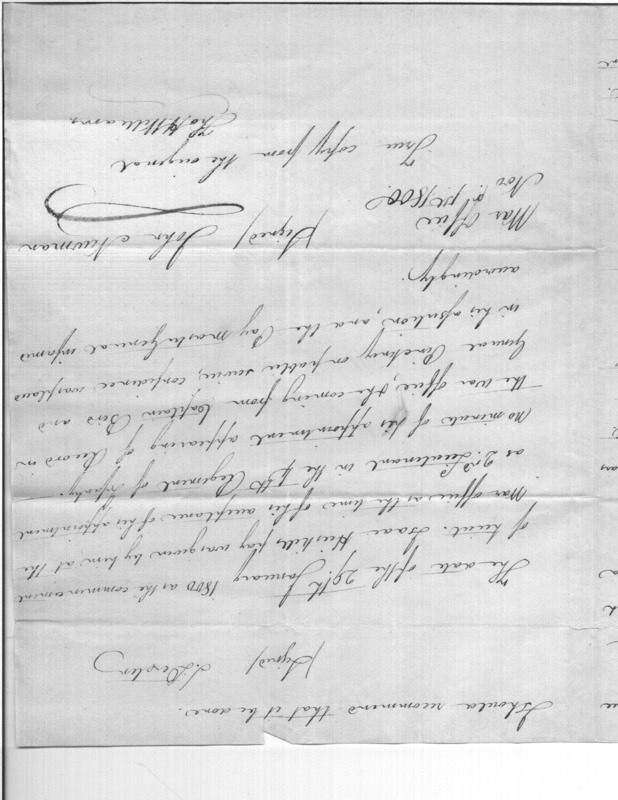 I should recommend that it be done.
(Signed) J. Dexter
The date of the 29th January 1800 as the commencement
of Lieut. Isaac pay was given by him at the
War office as the time of his acceptance of his appointment
as 2nd Lieutenant in the 4th Regiment of Infantry.
No minute of his appointment appearing of Record in
the War office, & he coming from Captain Bird and
General Pinckney on public service, confidence was placed
in his assertion, and the Pay master General informed
accordingly.
(Signed) John Newman
War Office
Nov. 1st 1800
True copy from the original
Williams